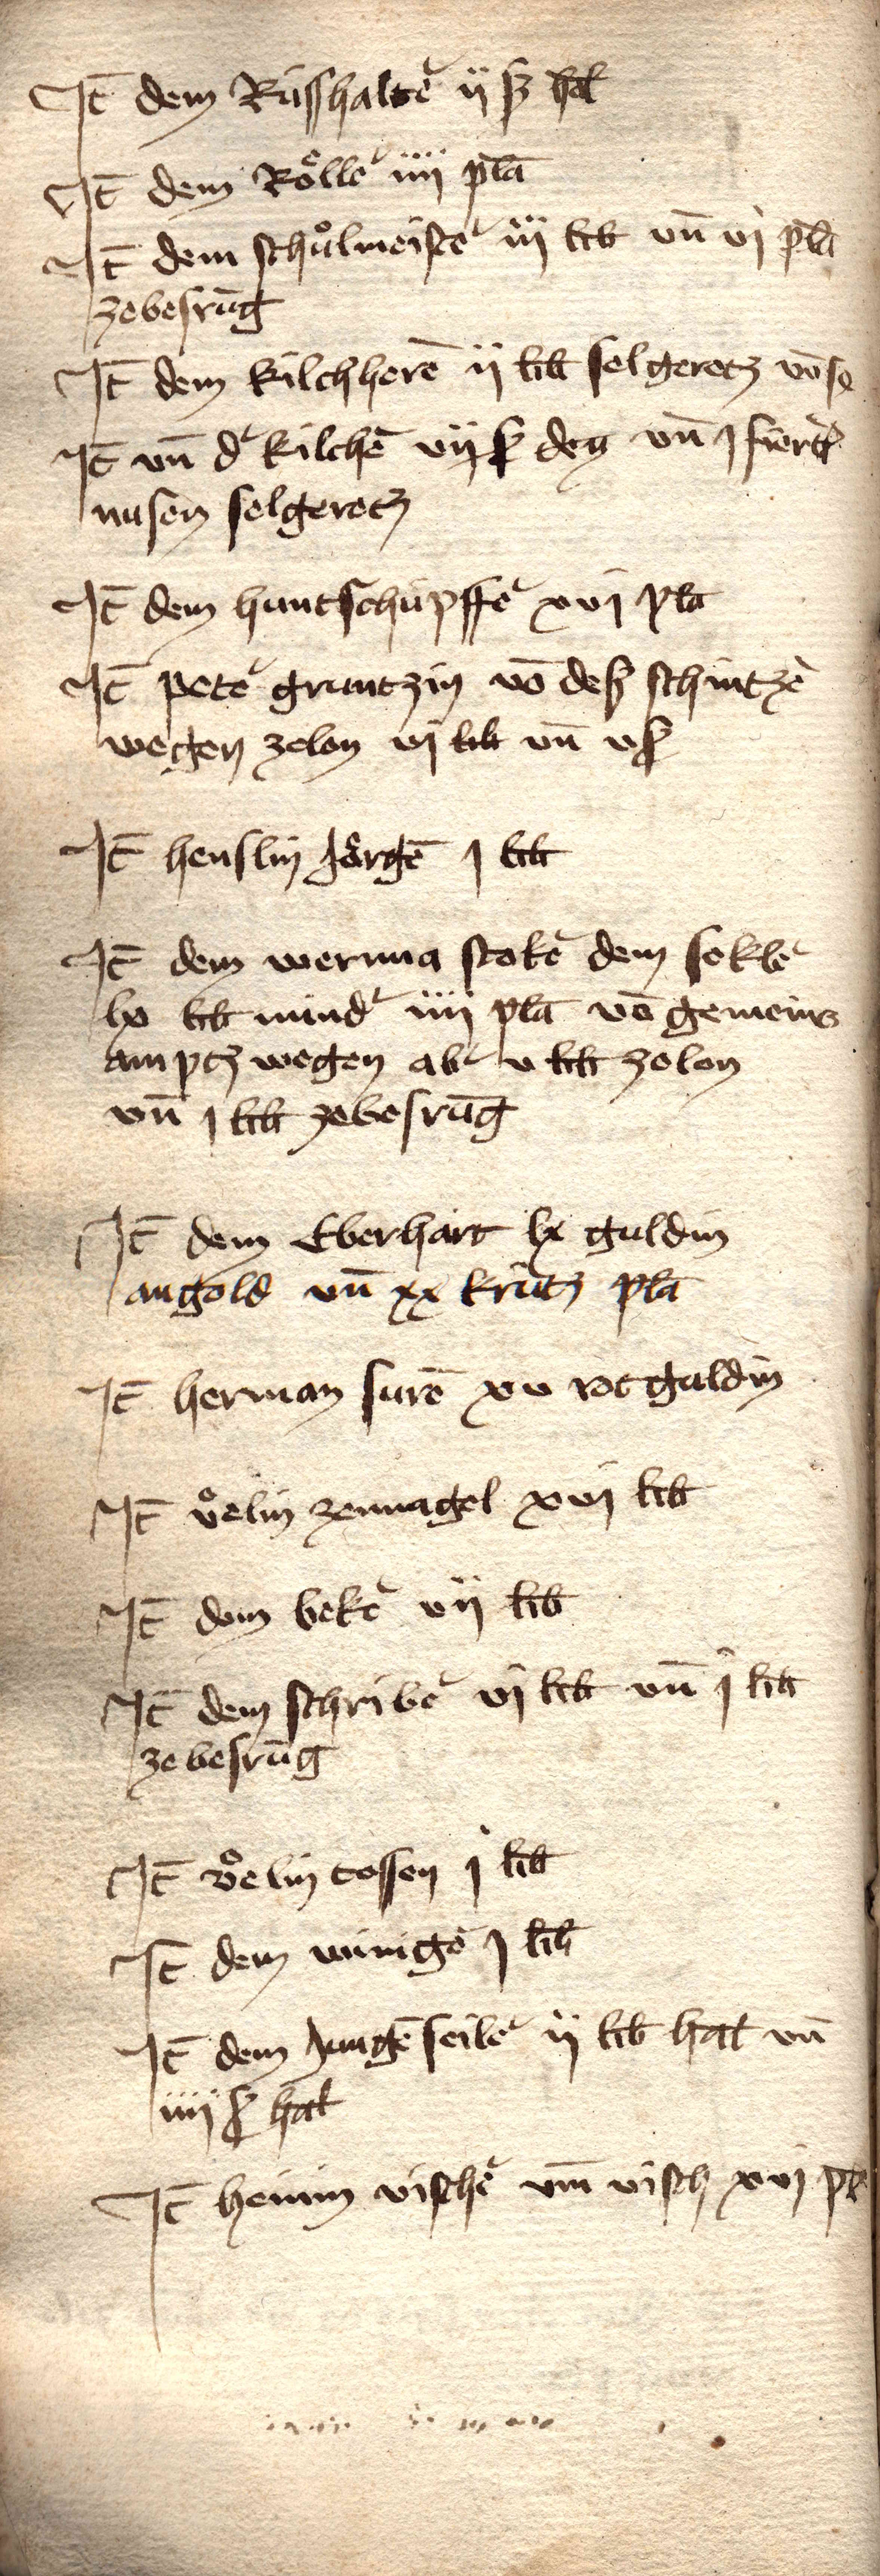 It̄ dem Rüsshalte᷑ ij ß hal
It̄ dem Rölle᷑ iiij pla᷑
It̄ dem schůlmeiste᷑ iij lib vn̄ vj pla᷑
zebesrūg
It̄ dem kilchherē ij lib selgeretz vō
It̄ vn̄ d᷑ kilchē vij ß den vn̄ j fiert᷑
nusen selgeretz
It̄ dem huntschüpffe᷑ xvj pla
It̄ pete᷑ gruntzin vō deß schintzē
wegen zelon vj lib vn̄ v ß
It̄ henslin Jörgē j lib
It̄ dem wernna stoke᷑ dem sekle᷑
lx lib mind᷑ iiij pla᷑ vō gemeins
amptz wegen ab᷑ v lib zelon
vn̄ j lib zebesrūg
It̄ dem Eberhart lx guldin
an gold vn̄ xx krütz pla᷑
It̄ herman surē xv rot guldin
It̄ ůelin zennagel xvj lib
It̄ dem beke᷑ vij lib
It̄ dem schribe᷑ vj lib vn̄ j lib
zebesrūg
It̄ ůelin tossen j lib
It̄ dem winige᷑ j lib
It̄ dem Jungē seile᷑ ij lib hal vn̄
iiij ß hal
It̄ heinin vische᷑ vm̄ visch xvj pla